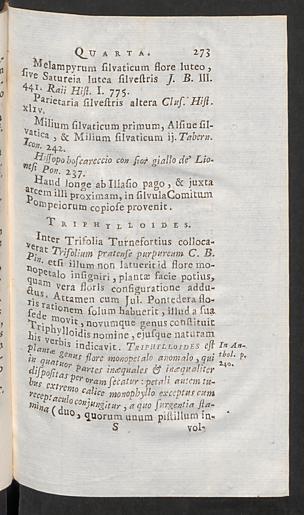 QUARTA. 273
Melampyrum silvaticum flore luteo,
sive Satureia lutea silvestris J. B. III.
441. Raii Hist. I. 775.
Parietaria silvestris altera Clus. Hist.
xliv.
Milium silvaticum primum, Alsiue sil-
vatica, & Milium silvaticum ij. Tabern.
Icon. 242.
Hissopo boscareccio con fior giallo de' Lio-
nesi Pon. 237.
Haud longe ab Illasio pago, & juxta
arcem illi proximam, in silvula Comitum
Pompeiorum copiose provenit.
TRIPHYLLOIDES.
Inter Trifolia Turnefortius colloca-
verat Trifolium pratense purpureum C. B.
Pin. etsi illum non latuerit id flore mo-
nopetalo insigniri, plantæ facie potius,
quam vera floris configuratione addu-
ctus. Attamen cum Jul. Pontedera flo-
ris rationem solum habuerit, illud a sua
sede movit, novumque genus constituit
Triphylloidis nomine, ejusque naturam
his verbis indicavit. TRIPHYLLOIDES est
plantæ genus flore monopetalo anomalo, qui
in quatuor partes inæquales & inæqualiter
dispositas per oram secatur: petali autem tu-
bus extremo calice monophyllo exceptus cum
receptaculo conjungitur, a quo surgentia sta-
mina (duo, quorum unum pistillum in-
S vol-
In An-
thol. p.
240.